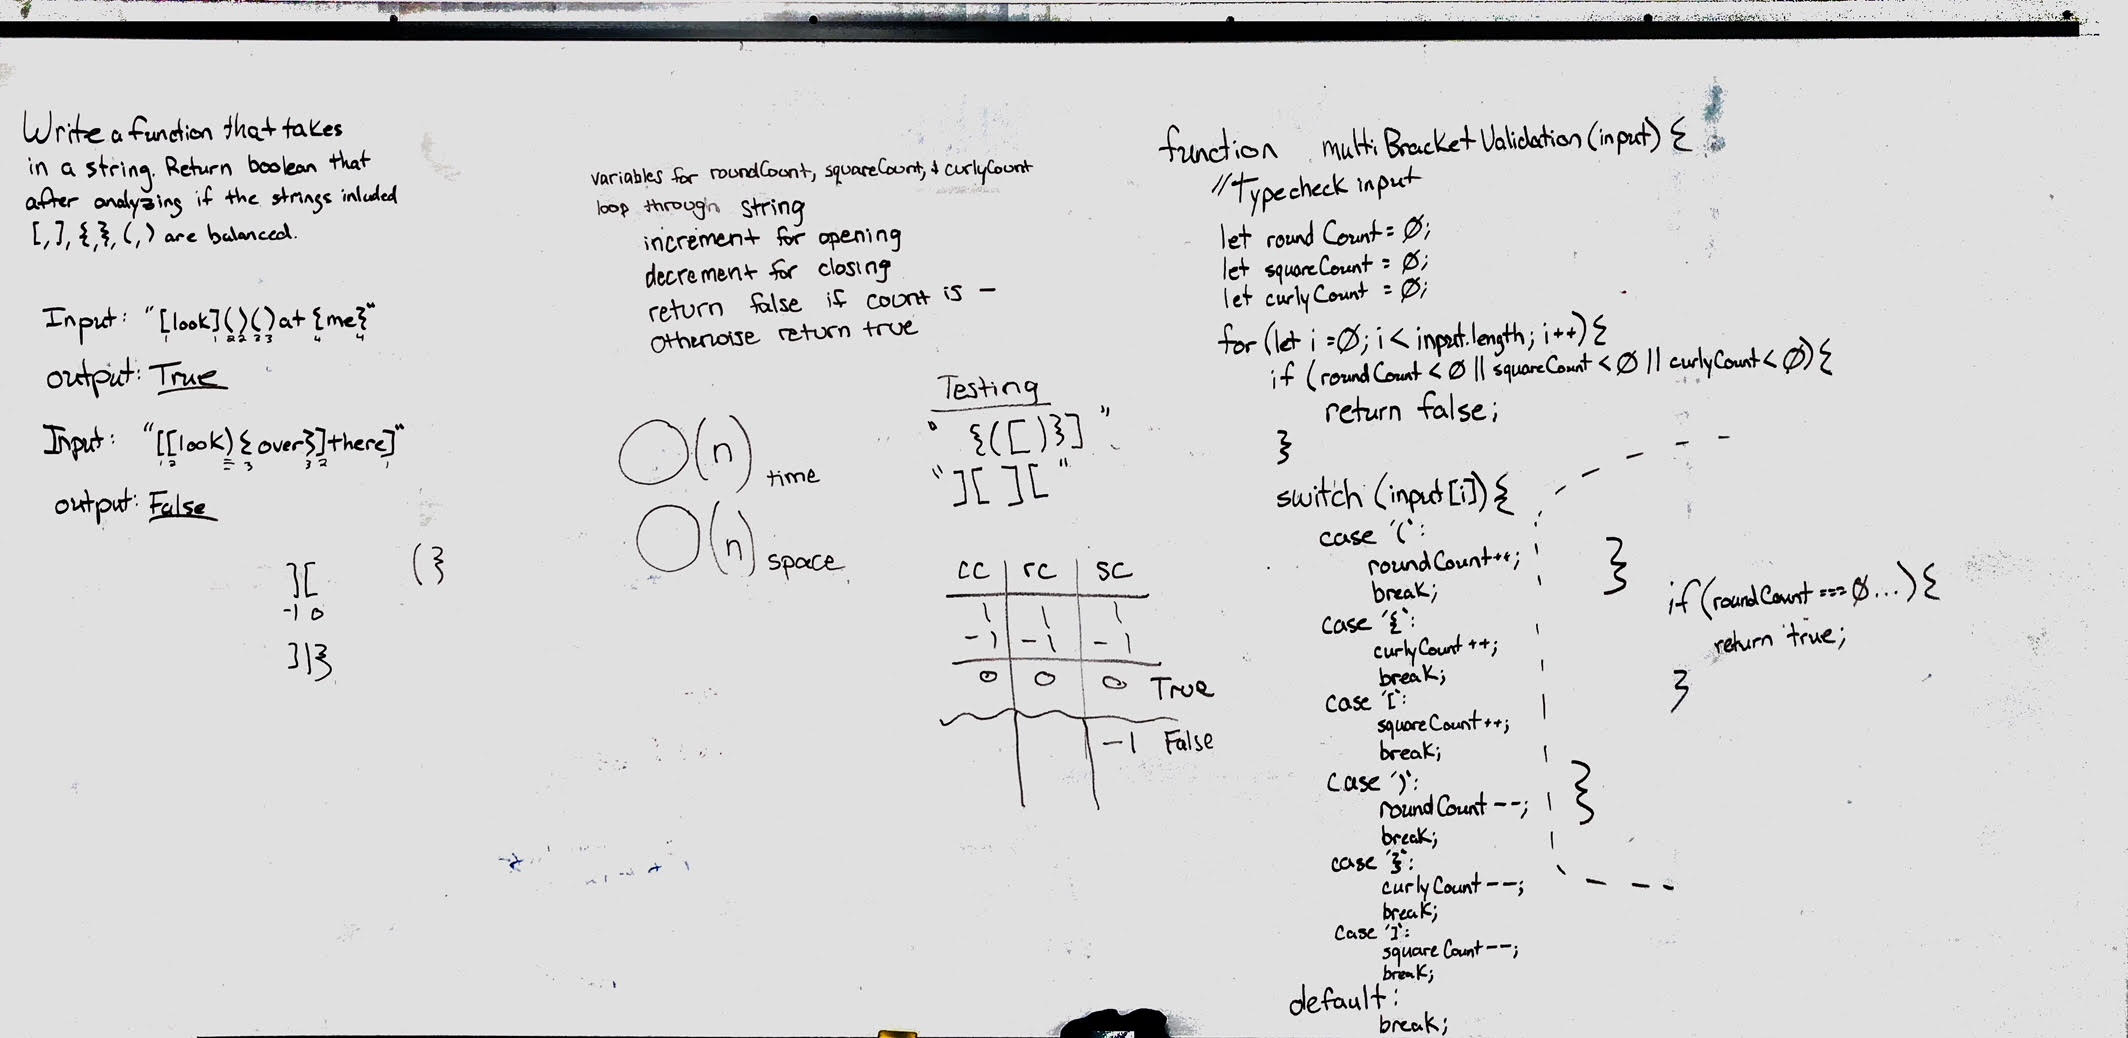 Write a function that takes
in a string. Return boolean that
after analyzing if the strings inluded
[,], {,}, (,) are balanced.
Input: "[look]()()at {me}"
1 1 2 2 3 3 4 4
output: True
Input: "[[look){over}]there]"
1 2 = 3 3 2 1
output: False
][
-1 0
(}
])}
variables for roundCount, squareCount, & curlyCount
loop through string
increment for opening
decrement for closing
return false if count is -
otherwise return true
O(n) time
O(n) space
Testing
" {([)}] "
"][ ]["
cc rc sc
1 1 1
-1 -1 -1
0 0 0 True
-1 False
function multiBracketValidation(input) {
//Typecheck input
let roundCount = 0;
let squareCount = 0;
let curlyCount = 0;
for (let i = 0; i < input.length; i++) {
if (roundCount < 0 || squareCount < 0 || curlyCount < 0) {
return false;
}
switch (input[i]) {
case '(':
roundCount++;
break;
case '{':
curlyCount++;
break;
case '[':
squareCount++;
break;
case ')':
roundCount--;
break;
case '}':
curlyCount--;
break;
case ']':
squareCount--;
break;
default:
break;
}
}
if (roundCount === 0...) {
return true;
}